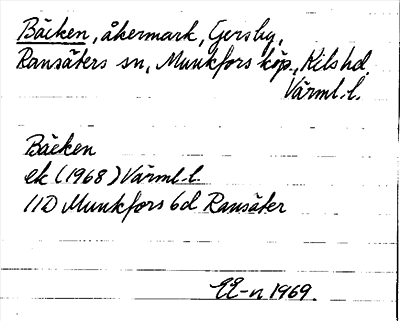 Bäcken, åkermark, Gersby,
Ransäters sn, Munkfors köp., Kils hd.
Värml. l.
Bäcken
ek (1968) Värml. l.
11D Munkfors 6d Ransäter
EE-n 1969.